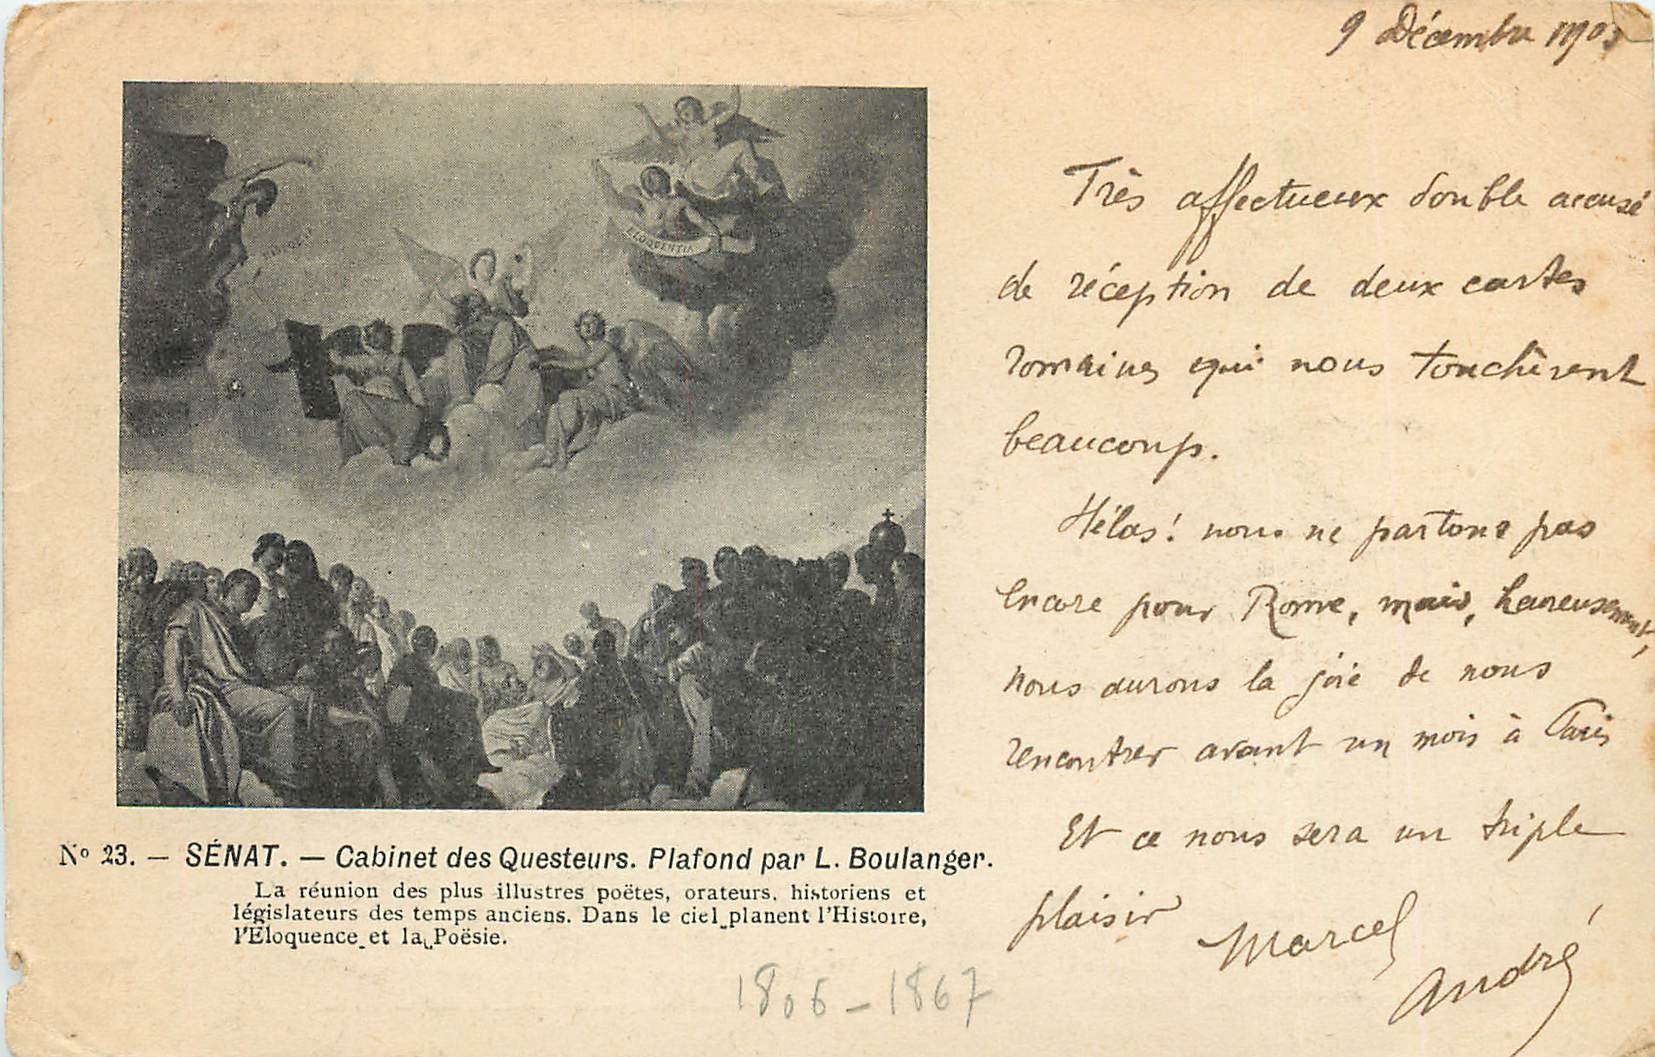 9 Décembre 190
Très affectueux double accusé
de réception de deux cartes
romaines qui nous touchèrent
beaucoup.
Hélas! nous ne partons pas
encore pour Rome, mais, heureusement,
nous aurons la joie de nous
rencontrer avant un mois à Paris
Et ce nous sera un triple
plaisir
Marcel
André
ELOQUENTIA
Nº 23. — SÉNAT. — Cabinet des Questeurs. Plafond par L. Boulanger.
La réunion des plus illustres poëtes, orateurs, historiens et
législateurs des temps anciens. Dans le ciel planent l'Histoire,
l'Eloquence et la Poësie.
1806-1867